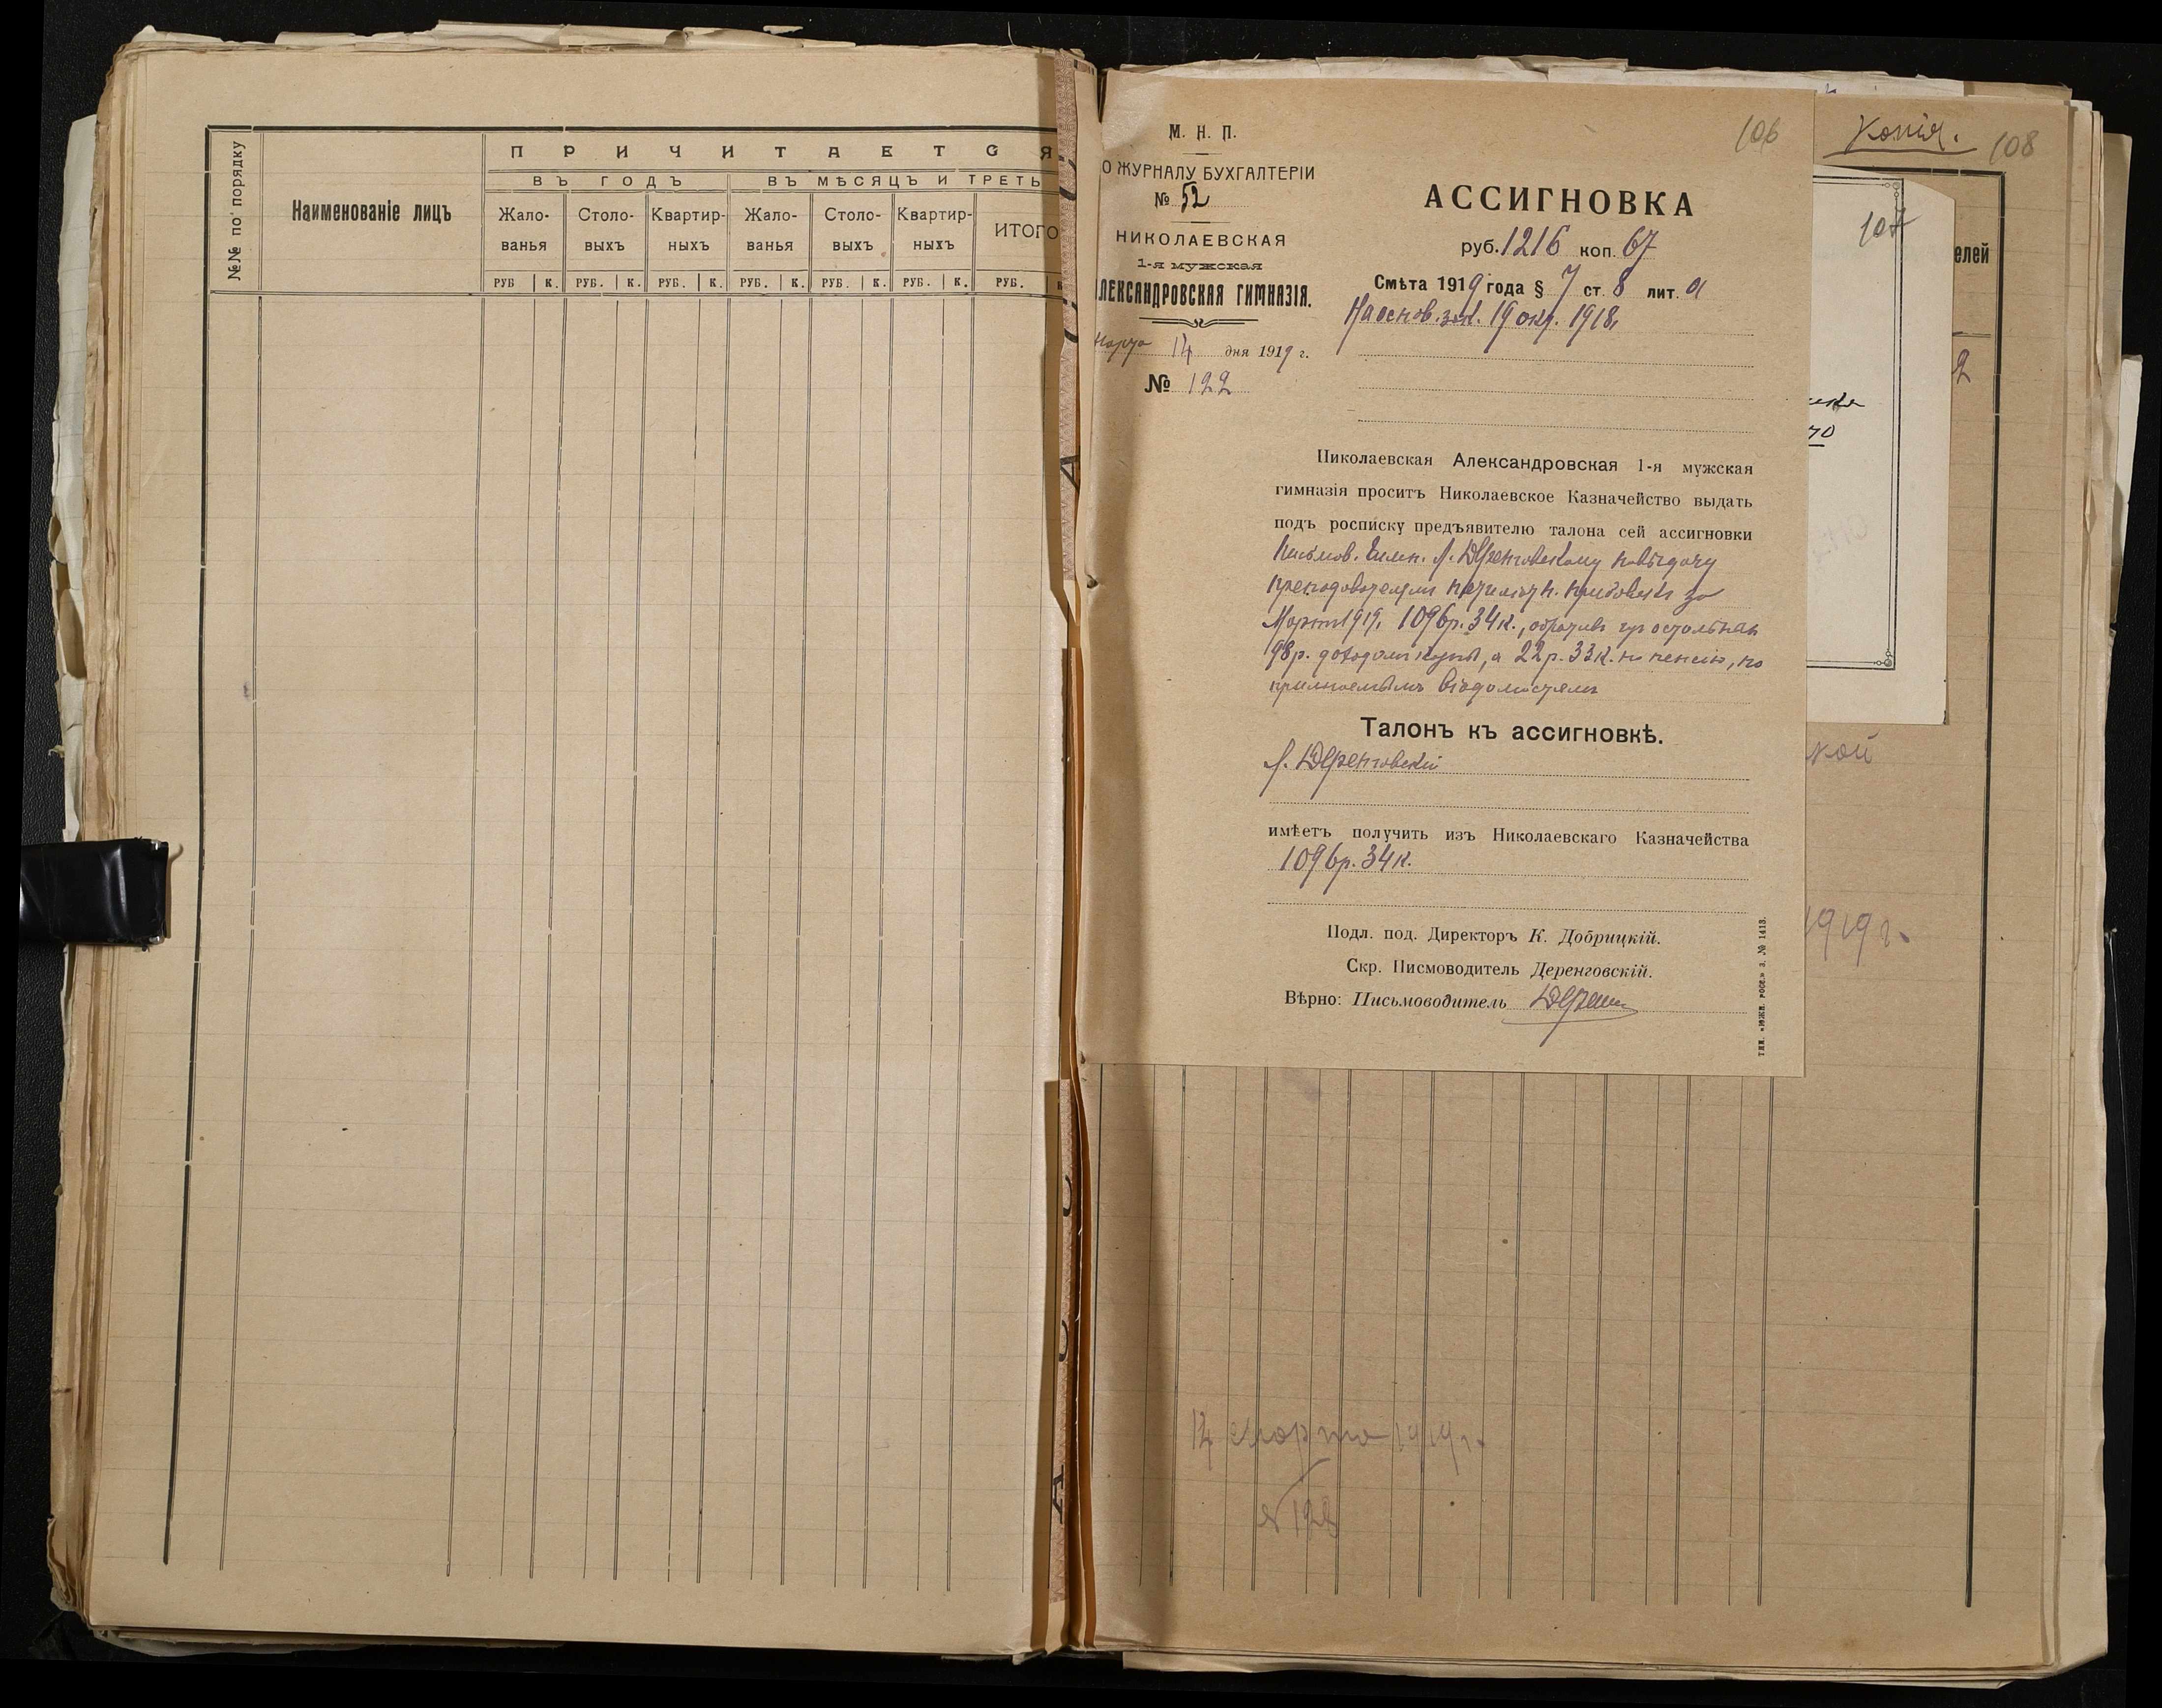 №№ по порядку
Наименованіе лицъ
ПРИЧИТАЕТСЯ
ВЪ ГОДЪ
ВЪ МѢСЯЦЪ И ТРЕТЬ
Жало-
ванья
Столо-
выхъ
Квартир-
ныхъ
Жало-
ванья
Столо-
выхъ
Квартир-
ныхъ
ИТОГО
РУБ К. РУБ. К. РУБ. К. РУБ. К. РУБ. К. РУБ. К. РУБ.
М. Н. П.
О ЖУРНАЛУ БУХГАЛТЕРІИ
№ 52
НИКОЛАЕВСКАЯ
1-я мужская
ЛЕКСАНДРОВСКАЯ ГИМНАЗІЯ.
Марта 14 дня 1919 г.
№ 122
106
АССИГНОВКА
руб. 1216 коп. 67
Смѣта 1919 года § 7 ст. 8 лит. а
На основ. зак. 19 окт. 1918 г.
Николаевская Александровская 1-я мужская
гимназія проситъ Николаевское Казначейство выдать
подъ росписку предъявителю талона сей ассигновки
Письмов. Гимн. Л. Деренговскому на выдачу
преподавателям процентн. прибавки за
Мартъ 1919 г. 1096 р. 34 к., обратив остальныя
98 р. доходом казны, а 22 р. 33 к. на пенсію, по
прилагаемымъ вѣдомостям
Талонъ къ ассигновкѣ.
Л. Деренговскій
имѣетъ получить изъ Николаевскаго Казначейства
1096 р. 34 к.
Подл. под. Директоръ К. Добрицкій.
Скр. Писмоводитель Деренговскій.
Вѣрно: Письмоводитель
ТИП. «ЮЖН. РОСС.» З. № 1413.
107
Копія.
108
елей
2
кой
1919 г.
14 марта 1919 г.